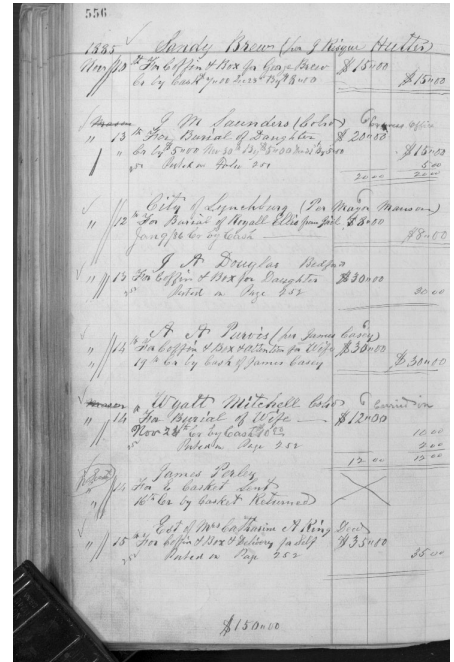 556
1885 Sandy Brew (for J Risque Hutter)
Nov 10th For Coffin & Box for George Brew $15.00
Cr by Cash $15.00
J M Saunders (Cold)
" 13th For Burial of Daughter $20.00
$15.00
5.00
Posted on Folio 252 20.00 20.00
City of Lynchburg (Per Mayor Manson)
" 12th For Burial of Royall Ellis from Jail $8.00
Cr by Cash $8.00
J A Douglas Bedford
" 13 For Coffin & Box for Daughter $30.00
Posted on Page 252 30.00
A A Purvis (per James Casey)
" 14th For Coffin & Box & Attention for Wife $30.00
19th Cr by Cash of James Casey $30.00
Wyatt Mitchell Cold
" 14th For Burial of Wife $12.00
Nov 24th Cr by Cash 10.00 10.00
Posted on Page 252 2.00
12.00 12.00
James
14 For Casket Sent
16th Cr by Casket Returned
Est of Mrs Catharine A King
" 15th For Coffin & Box & Delivery for Self $35.00
Posted on Page 252 35.00
$150.00